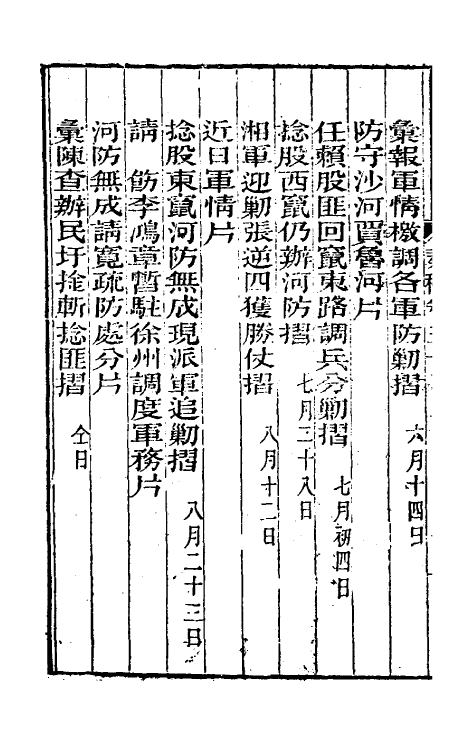 彙報軍情檄調各軍防勦摺 六月十四日
防守沙河賈魯河片
任賴股匪回竄東路調兵分勦摺 七月初四日
捻股西竄仍辦河防摺 七月二十八日
湘軍迎勦張逆四獲勝仗摺 八月十二日
近日軍情片
捻股東竄河防無成現派軍追勦摺 八月二十三日
請 飭李鴻章暫駐徐州調度軍務片
河防無成請寬疏防處分片
彙陳查辦民圩擒斬捻匪摺 仝日